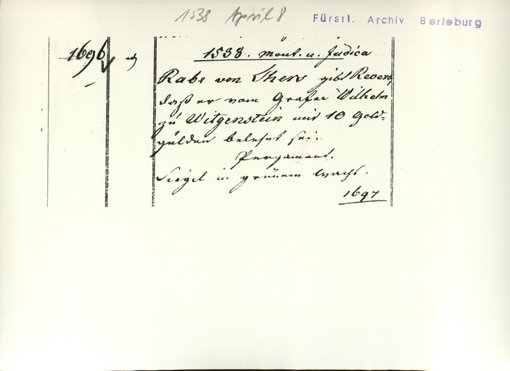 1538 April 8
Fürstl. Archiv Berleburg
1696
1538. Mont. n. Judica
Rabe von gibt Revers,
daß er vom Grafen Wilhelm
zu Witgenstein mit 10 Gold-
gülden belehnt sei.
Pergament.
Siegel in grünem Wachs.
1697